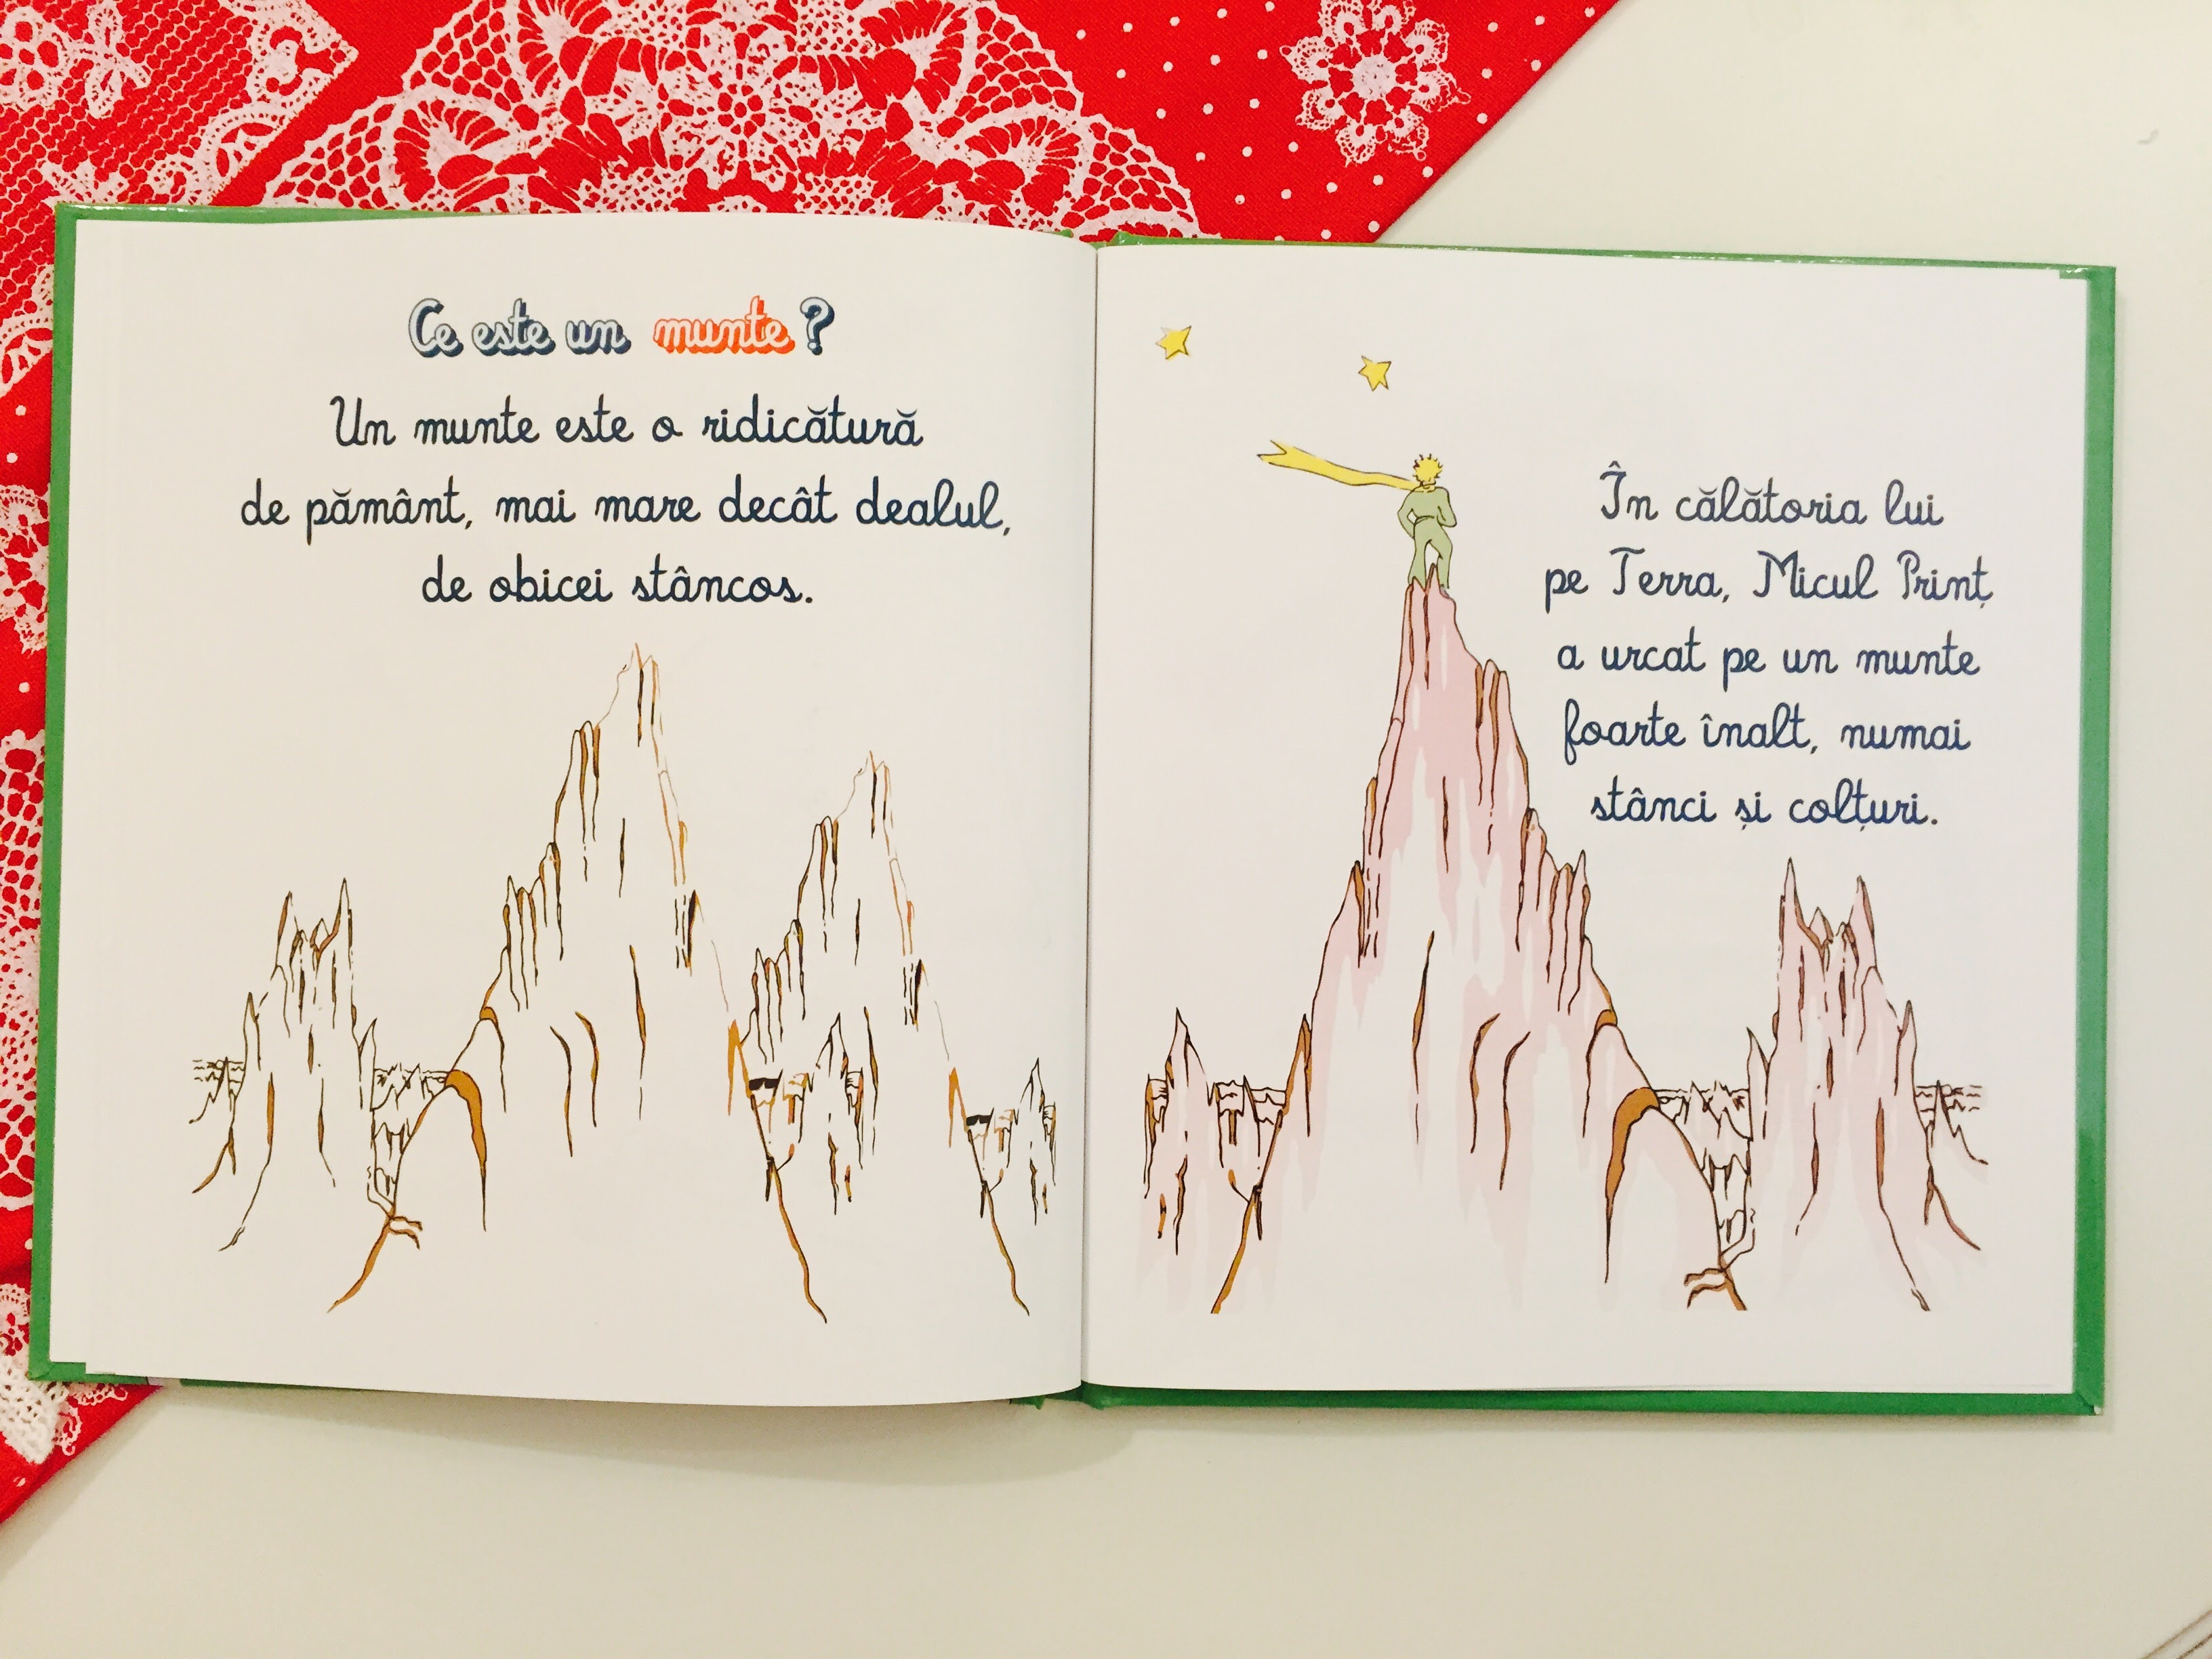 Ce este un munte?
Un munte este o ridicătură
de pământ, mai mare decât dealul,
de obicei stâncos.
În călătoria lui
pe Terra, Micul Prinț
a urcat pe un munte
foarte înalt, numai
stânci și colțuri.